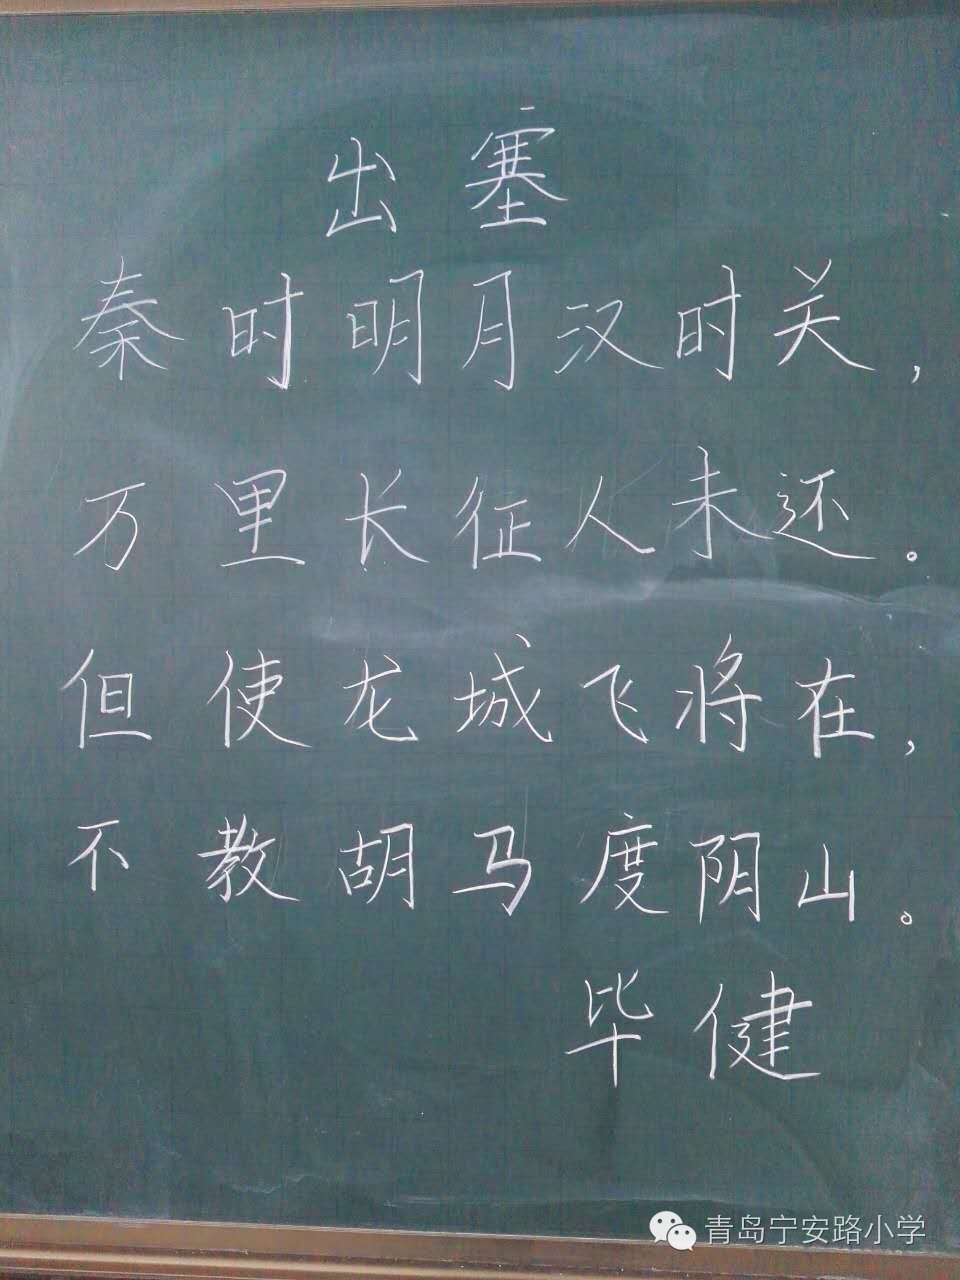 出塞
秦时明月汉时关，
万里长征人未还。
但使龙城飞将在，
不教胡马度阴山。
毕健
青岛宁安路小学